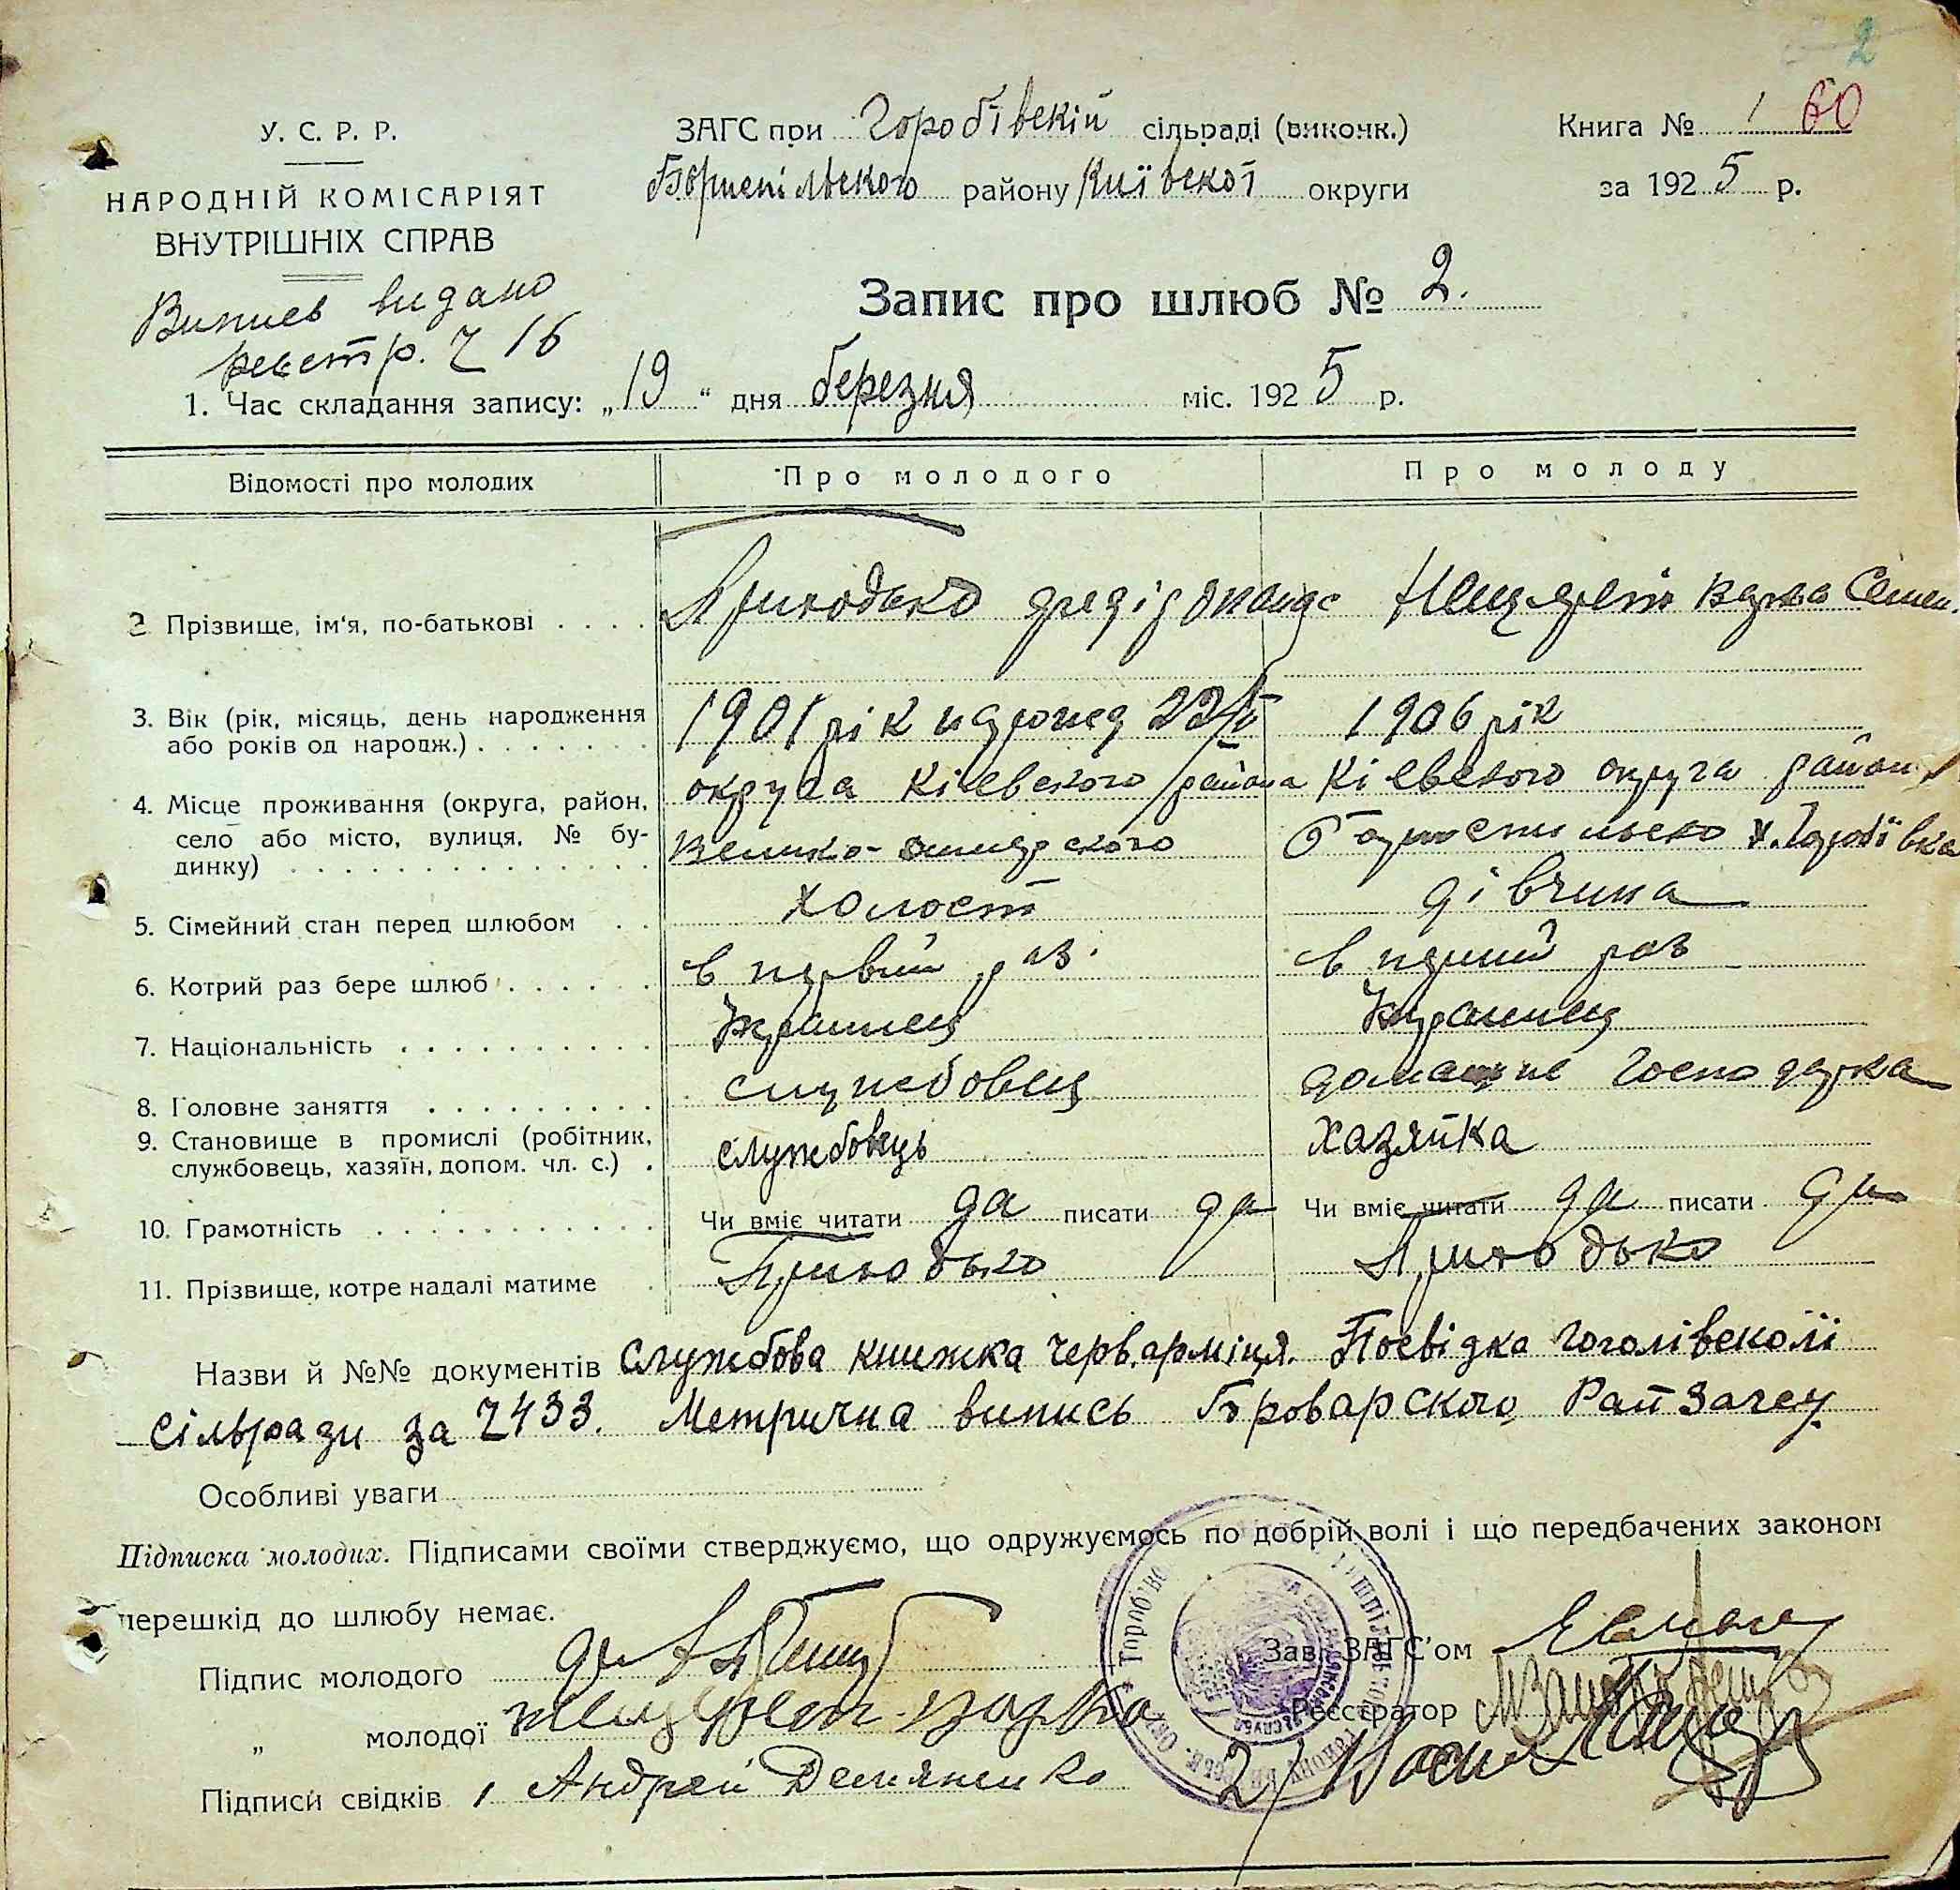 2
У. С. Р. Р.
НАРОДНІЙ КОМІСАРІЯТ
ВНУТРІШНІХ СПРАВ
Випись видано
реєстр. Ч 16
ЗАГС при Горобівскій сільраді (виконк.)
Бориспільского району Київскої округи
Книга № 1 60
за 1925 р.
Запис про шлюб № 2.
1. Час складання запису: „19“ дня березня міс. 1925 р.
Відомості про молодих Про молодого Про молоду
2 Прізвище, ім'я, по-батькові . . . . Приходько Семен.
3. Вік (рік, місяць, день народження 1901 рік 1906 рік
або років од народж.) . . . . . . .
4. Місце проживання (округа, район, округа Кіевского района Кіевского округа район
село або місто, вулиця, № бу- Велико-
динку) . . . . . . . . . . . . . . .
5. Сімейний стан перед шлюбом . . холост дівчина
6. Котрий раз бере шлюб . . . . . . в первий раз. в перший раз
7. Національність . . . . . . . . . . Украинец Украинец
8. Головне заняття . . . . . . . . . . служебовец домашне господарка
9. Становище в промислі (робітник, службовець хазяйка
службовець, хазяїн, допом. чл. с.) .
10. Грамотність . . . . . . . . . . . Чи вміє читати да писати да Чи вміє читати да писати да
11. Прізвище, котре надалі матиме . Приходько Приходько
Назви й №№ документів Службова книжка черв.арміця. Посвідка Гоголівскої
сільради за 2433. Метрична випись Броварского РайЗагсу.
Особливі уваги
Підписка молодих. Підписами своїми стверджуємо, що одружуємось по добрій волі і що передбачених законом
перешкід до шлюбу немає.
Підпис молодого
Зав. ЗАГС'ом
„ молодої
Реєстратор
Підписи свідків 1 Андрей Демяненко 2/